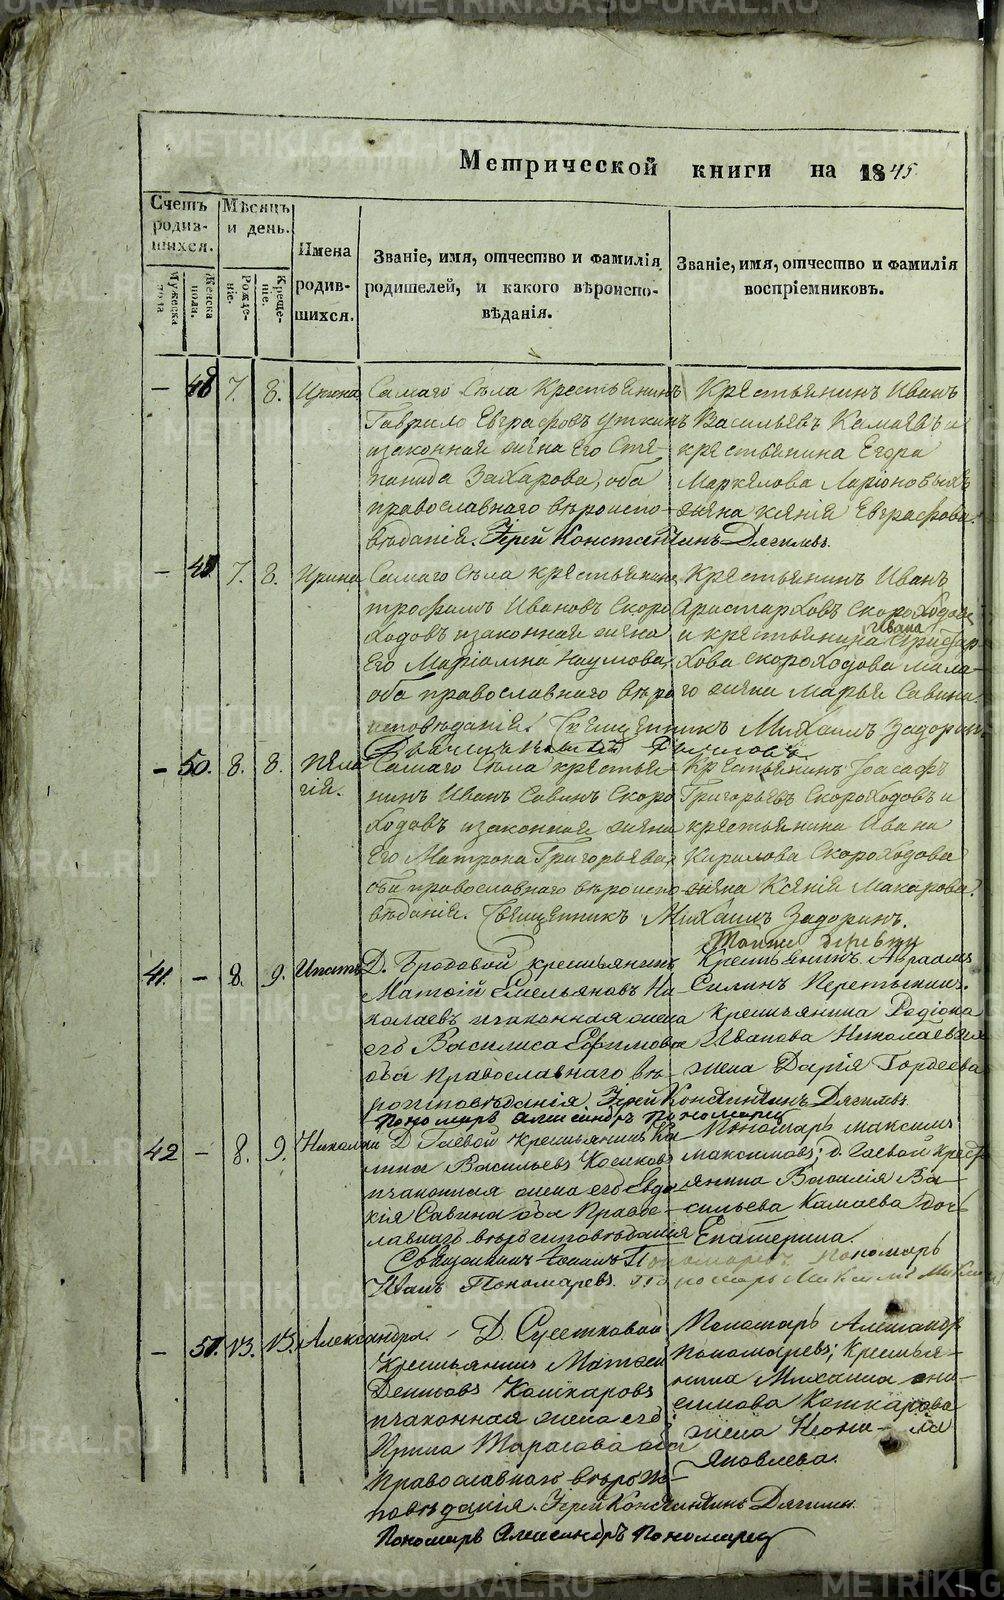 METRIKI.GASO-URAL.RU
Метрической книги на 1845
Счетъ родившихся.
Мѣсяцъ и день.
Имена родившихся.
Званіе, имя, отчество и фамилія родителей, и какого вѣроисповѣданія.
Званіе, имя, отчество и фамилія воспріемниковъ.
Мужеска пола
Женска пола.
Рожденіе.
Крещеніе.
— 48 7. 8. Ирина
Самаго Села Крестьянинъ
Гаврило Евграфовъ Уткинъ
изаконная жена его Сте-
панида Захарова, оба
православнаго вѣроиспо-
вѣданія. Іерей Константинъ Дягилевъ.
Крестьянинъ Иванъ
Васильевъ Камаевъ и
крестьянина Егора
Маркелова Ларіоновыхъ
жена Ксенія Евграфова.
— 49 7. 8. Ирина
Самаго Села крестьянинъ
трофимъ Ивановъ Скоро
ходовъ изаконная жена
Его Маріамна Наумова,
оба православнаго вѣро
исповѣданія. Священникъ Михаилъ Задоринъ
Крестьянинъ Иванъ
Аристарховъ Скороходовъ
и крестьянина Ивана Аристар-
хова скороходова мала-
го жена Марья Савина.
— 50. 8. 8. Пела
гія.
Самаго Села крестья-
нинъ Иванъ Савинъ Скоро
ходовъ изаконная жена
Его Матрона Григорьева,
оба православнаго вѣроиспо-
вѣданія. Священникъ Михаилъ Задоринъ.
Крестьянинъ Іоасафъ
Григорьевъ Скороходовъ и
крестьянина Ивана
Кирилова Скороходова
жена Ксенія Макарова.
41. — 8. 9. Ипатъ
Д. Бродовой крестьянинъ
Матѳій Емельяновъ Ни-
колаевъ изаконная жена
его Василиса Ефимова
оба Православнаго вѣ-
роисповѣданія. Іерей Константинъ Дягилевъ.
Пономарь Александръ Пономаревъ
Тойже деревни
Крестьянинъ Авраамъ
Силинъ Перетыкинъ.
крестьянина Родіона
Иванова Николаевыхъ
жена Дарія Гордеева
42 — 8. 9. Николай
Д. Гаевой Крестьянинъ Ка
лина Васильевъ Косяковъ
изаконная жена его Евдо
кія Савина оба Право-
славнаго вѣроисповѣданія
Священникъ Іоаннъ Пономаревъ Пономарь
Иванъ Пономаревъ.
Пономарь Максимъ
Максимовъ; д. Гаевой крест
янина Василія Ва-
сильева Камаева дочь
Екатерина.
— 51. 13. 13. Александра.
Д. Суетковой
Крестьянинъ Матѳей
Дентовъ Кошкаровъ
изаконная жена его
Ирина Тарасова оба
Православнаго вѣроис-
повѣданія. Іерей Константинъ Дягилевъ.
Пономарь Александръ Пономаревъ
Пономарь Александръ
Пономаревъ; Крестья-
нина Михаила Они-
симова Кошкарова
жена Неони- ла
Яковлева.